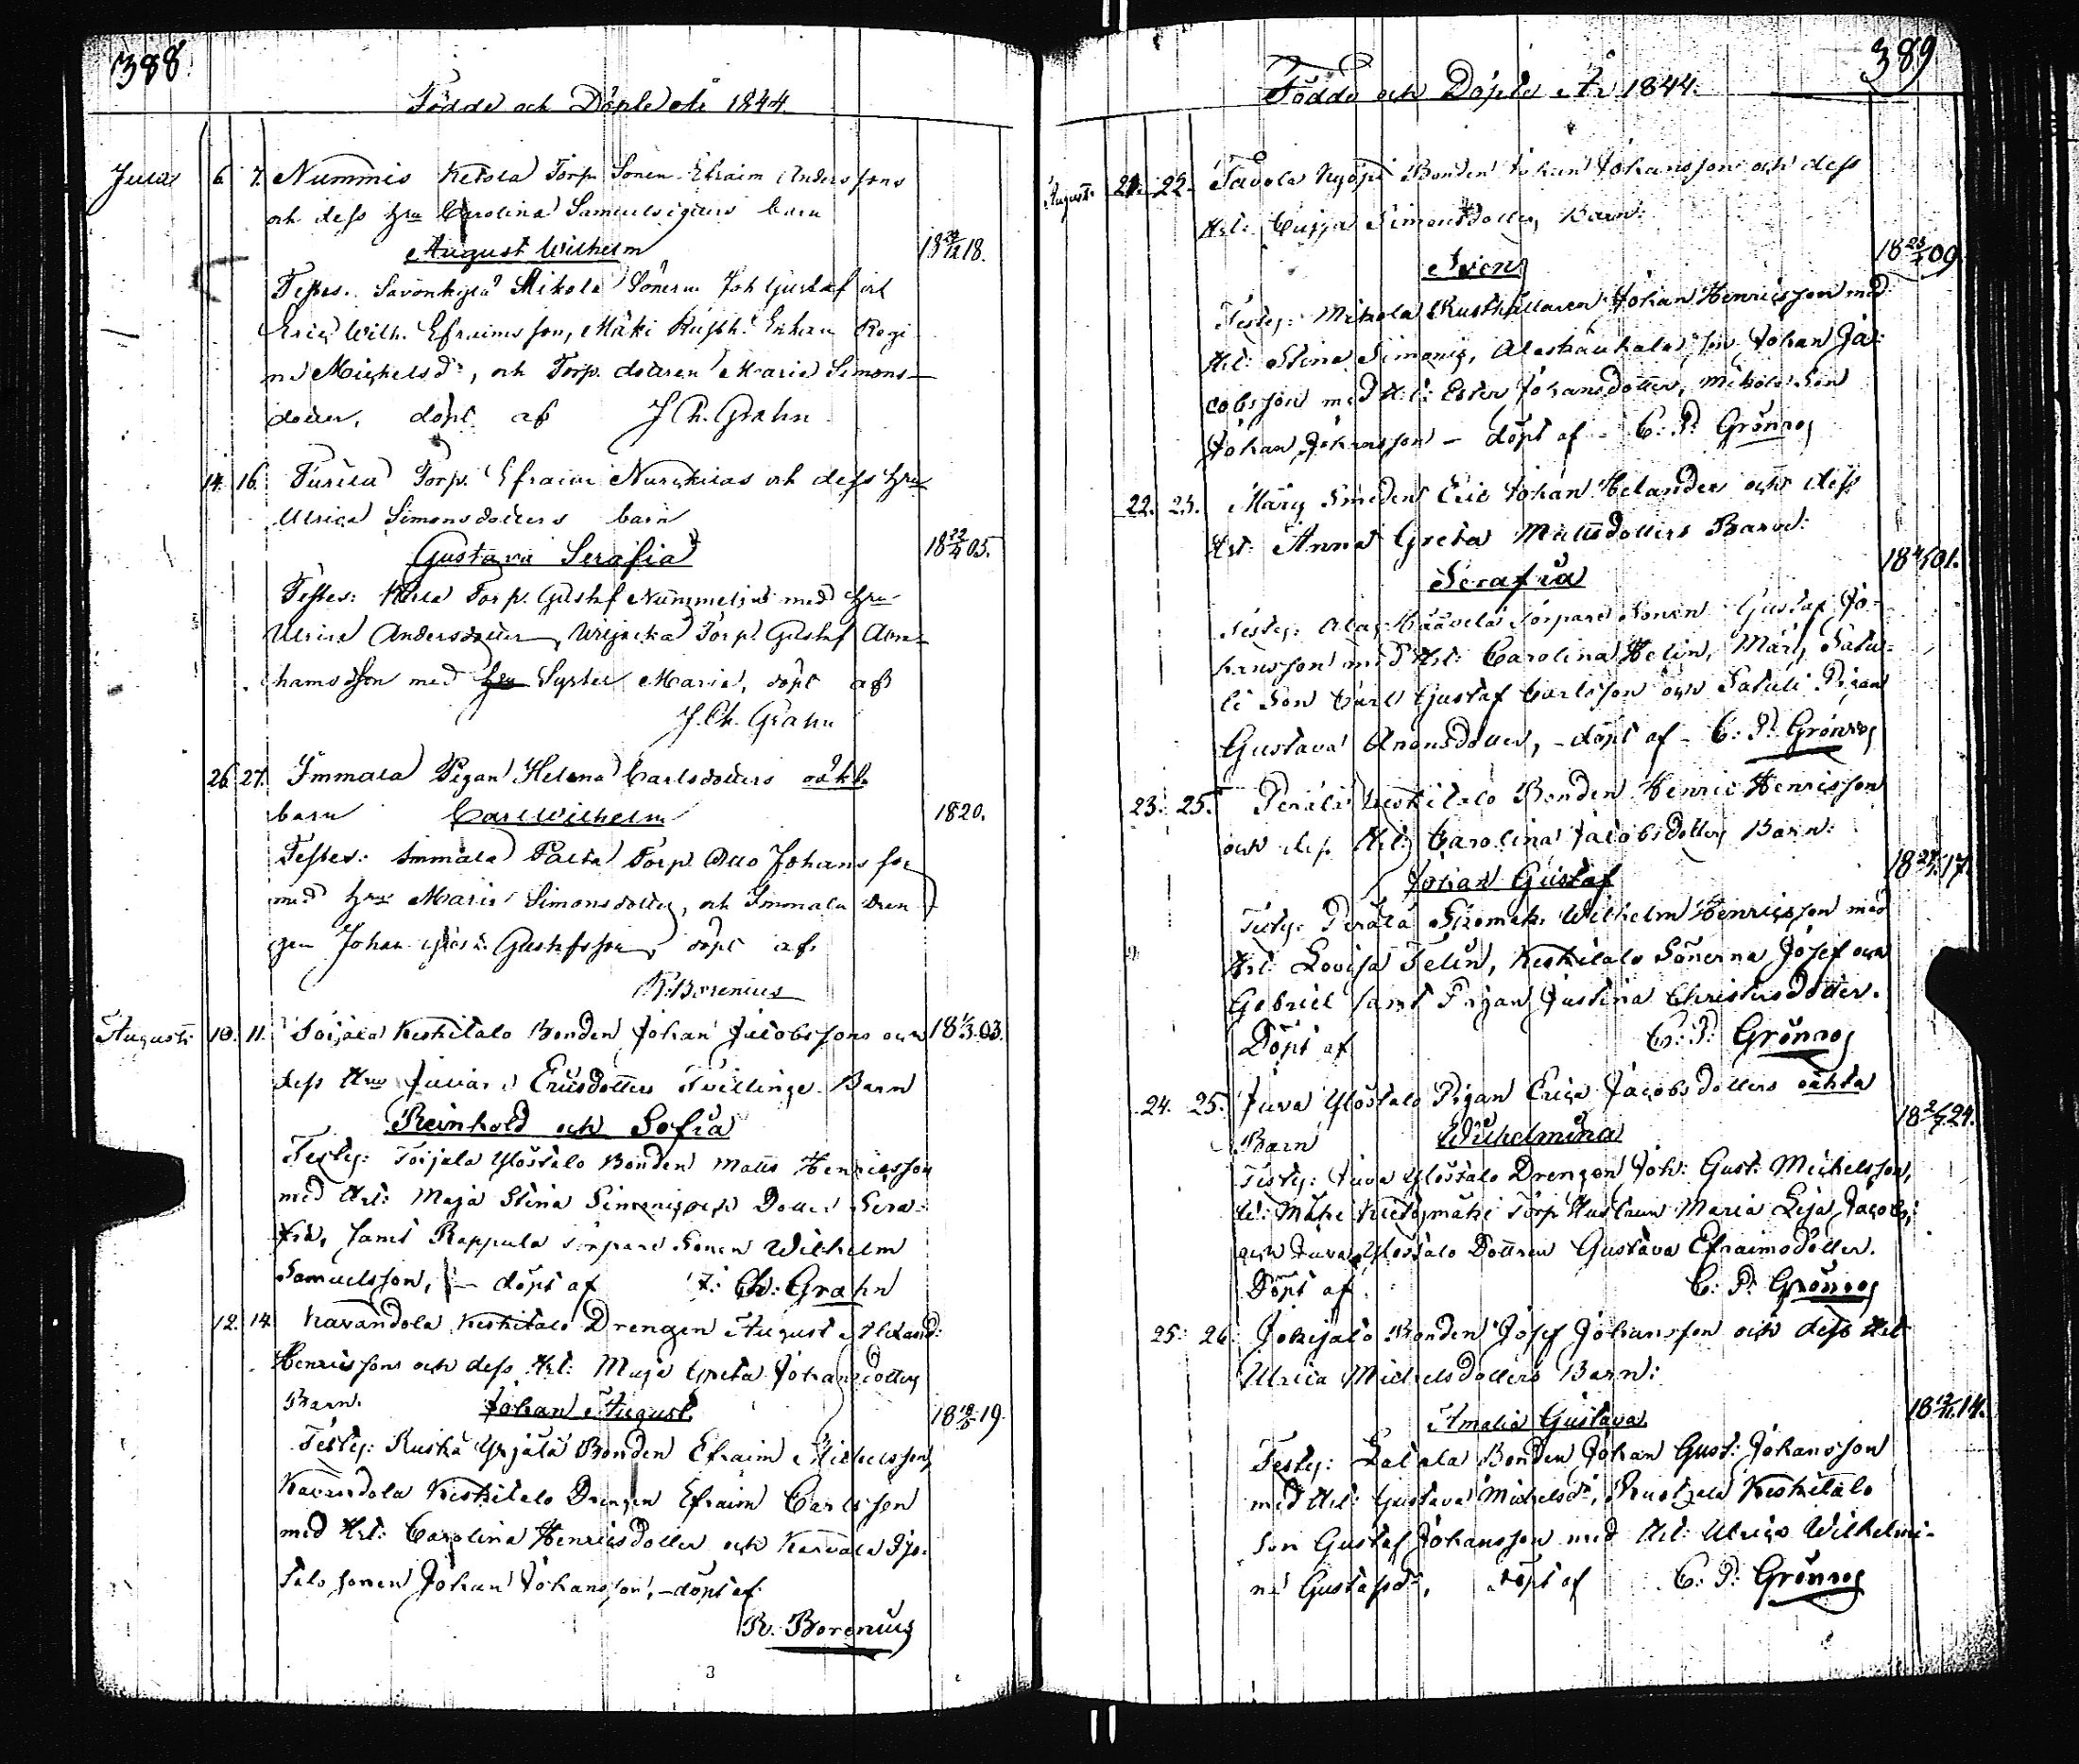 388
Födde och Döpte År 1844
Julii 6. 7. Nummis Ketola Torp. Sonen Efraim Anderssons
och dess Hru Carolina Samuelsdotters barn
August Wilhelm
18 18.
Testes. Savonkylä Mikola Sönerne Joh Gustaf och
Eric Wilh. Efraimsson, Mäki Rusth. Enkan Regi
na Michelsd:, och Torp. dottren Maria Simons-
dotter, döpt af J. Ch. Grahn
14. 16. Torp. Efraim Nurckilas och dess Hru
Ulrica Simonsdotters barn
Gustava Serafia
18 22/4 05.
Testes: Torp. Gustaf Nummelin med Hru
Ulrica Andersdotter, Torp. Gustaf Abra-
hamsson med Syster Maria, döpt af
J. Ch. Grahn
26. 27. Immala Pigan Helena Carlsdotters oäkt.
barn Carl Wilhelm
1820.
Testes: Immala Torp. Otto Johansson
med Hru Maria Simonsdotter, och Immala Dren
gen Johan Gustafsson, döpt af
R. Borenius
Augusti 10. 11. Toijala Keskitalo Bonden Johan Jacobssons och
18 1/3 03.
dess Hru Ericsdotters Tvillinge Barn
Reinhold och Sofia
Testes: Toijala Ylöstalo Bonden Matts Henricsson
med Hst: Maja Stina Simonis och Dotter Sera-
fia, samt Rappula Torpare Sonen Wilhelm
Samuelsson, – döpt af J: Ch: Grahn
12. 14. Kavandola Keskitalo Drengen August Alexand:
Henricssons och dess Hst: Maja Greta Johansdotters
Barn. Johan August
18 19.
Testes: Ruskä Yrjälä Bonden Efraim Michelsson,
Kavandola Keskitalo Drengen Efraim Carlsson
med Hst: Carolina Henricsdotter och Karvala
talo Sonen Johan Johansson, – döpt af
R. Borenius

389
Födde och Döpte År 1844.
Augusti. 21. 22. Tavola Bonden Johan Johansson och dess
Hst: Caisja Simonsdotters Barn:
18 23/ 09.
Testes: Mikola Rusthållaren Johan Henricsson med
Hst: Stina Simonis, son Johan Ja-
cobsson med Hst: Ester Johansdotter, Mikola Son
Johan Johansson – döpt af – C: P: Grönroos
22. 25. Märy Smeden Eric Johan Helander och dess
Hst: Anna Greta Mattsdotters Barn:
18 01.
Serafia
Testes: Torpare Sonen Gustaf Jo-
hansson med Hst: Carolina Helin, Märy Tatu-
li Son Carl Gustaf Carlsson och Tatuli Pigan
Gustava Anonsdotter, – döpt af – C: P: Grönroos
23. 25. Perälä Keskitalo Bonden Henric Henricsson
och dess Hst: Carolina Jacobsdotters Barn:
Johan Gustaf
18 17.
Testes: Perälä Skomak. Wilhelm Henricsson med
Hst: Lovisa Telin, Keskitalo Sönerna Josef och
Gabriel samt Pigan Justina Christersdotter.
Döpt af C: P: Grönroos
24. 25. Juva Ylöstalo Pigan Erica Jacobsdotters oäkta
Barn Wilhelmina
18 24.
Testes: Juva Ylöstalo Drengen Joh: Gust: Michelsson,
Torp Hustrun Maria Lisa Jacobs,
och Juva Ylöstalo Dottren Gustava Efraimsdotter.
Döpt af. C: P: Grönroos
25. 26. Jokisalo Bonden Josef Johansson och dess Hst
Ulrica Michelsdotters Barn:
Amalia Gustava
18 14.
Testes: Latala Bonden Johan Gust: Johansson
med Hst: Gustava Michelsdr, Keskitalo
Son Gustaf Johansson med Hst: Ulrica Wilhelmi-
na Gustafsdr, döpt af C: P: Grönroos